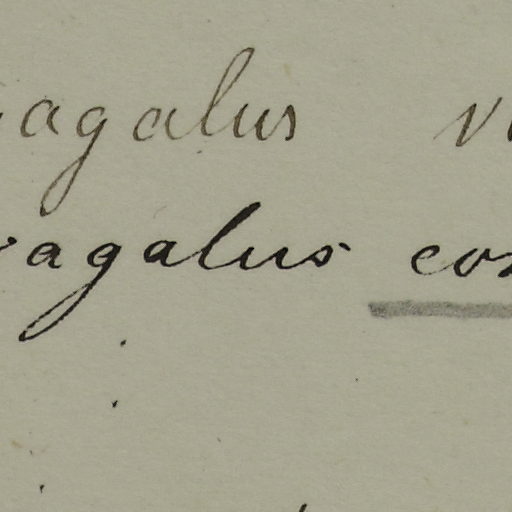 ragalus v
ragalus con